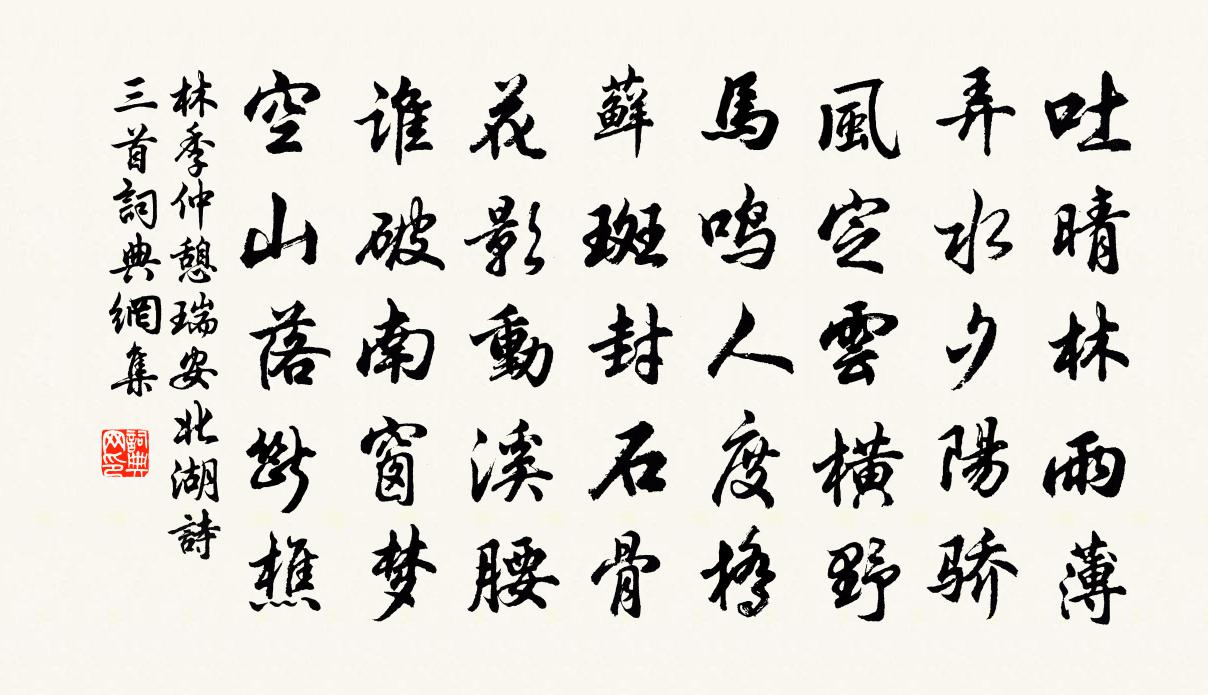 吐晴林雨薄
弄水夕陽骄
風定雲橫野
馬鸣人度橋
蘚斑封石骨
花影動溪腰
誰破南窗梦
空山落断樵
林季仲憩瑞安北湖詩
三首詞典網集
詞典网印